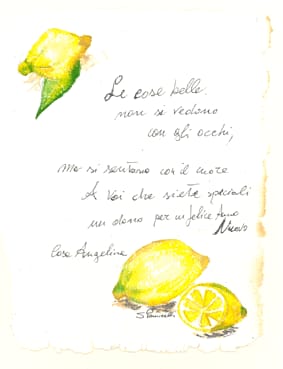 Le cose belle
non si vedono
con gli occhi,
ma si sentono con il cuore
A Voi che siete speciali
un dono per un felice Anno
Nuovo
Casa Angelina